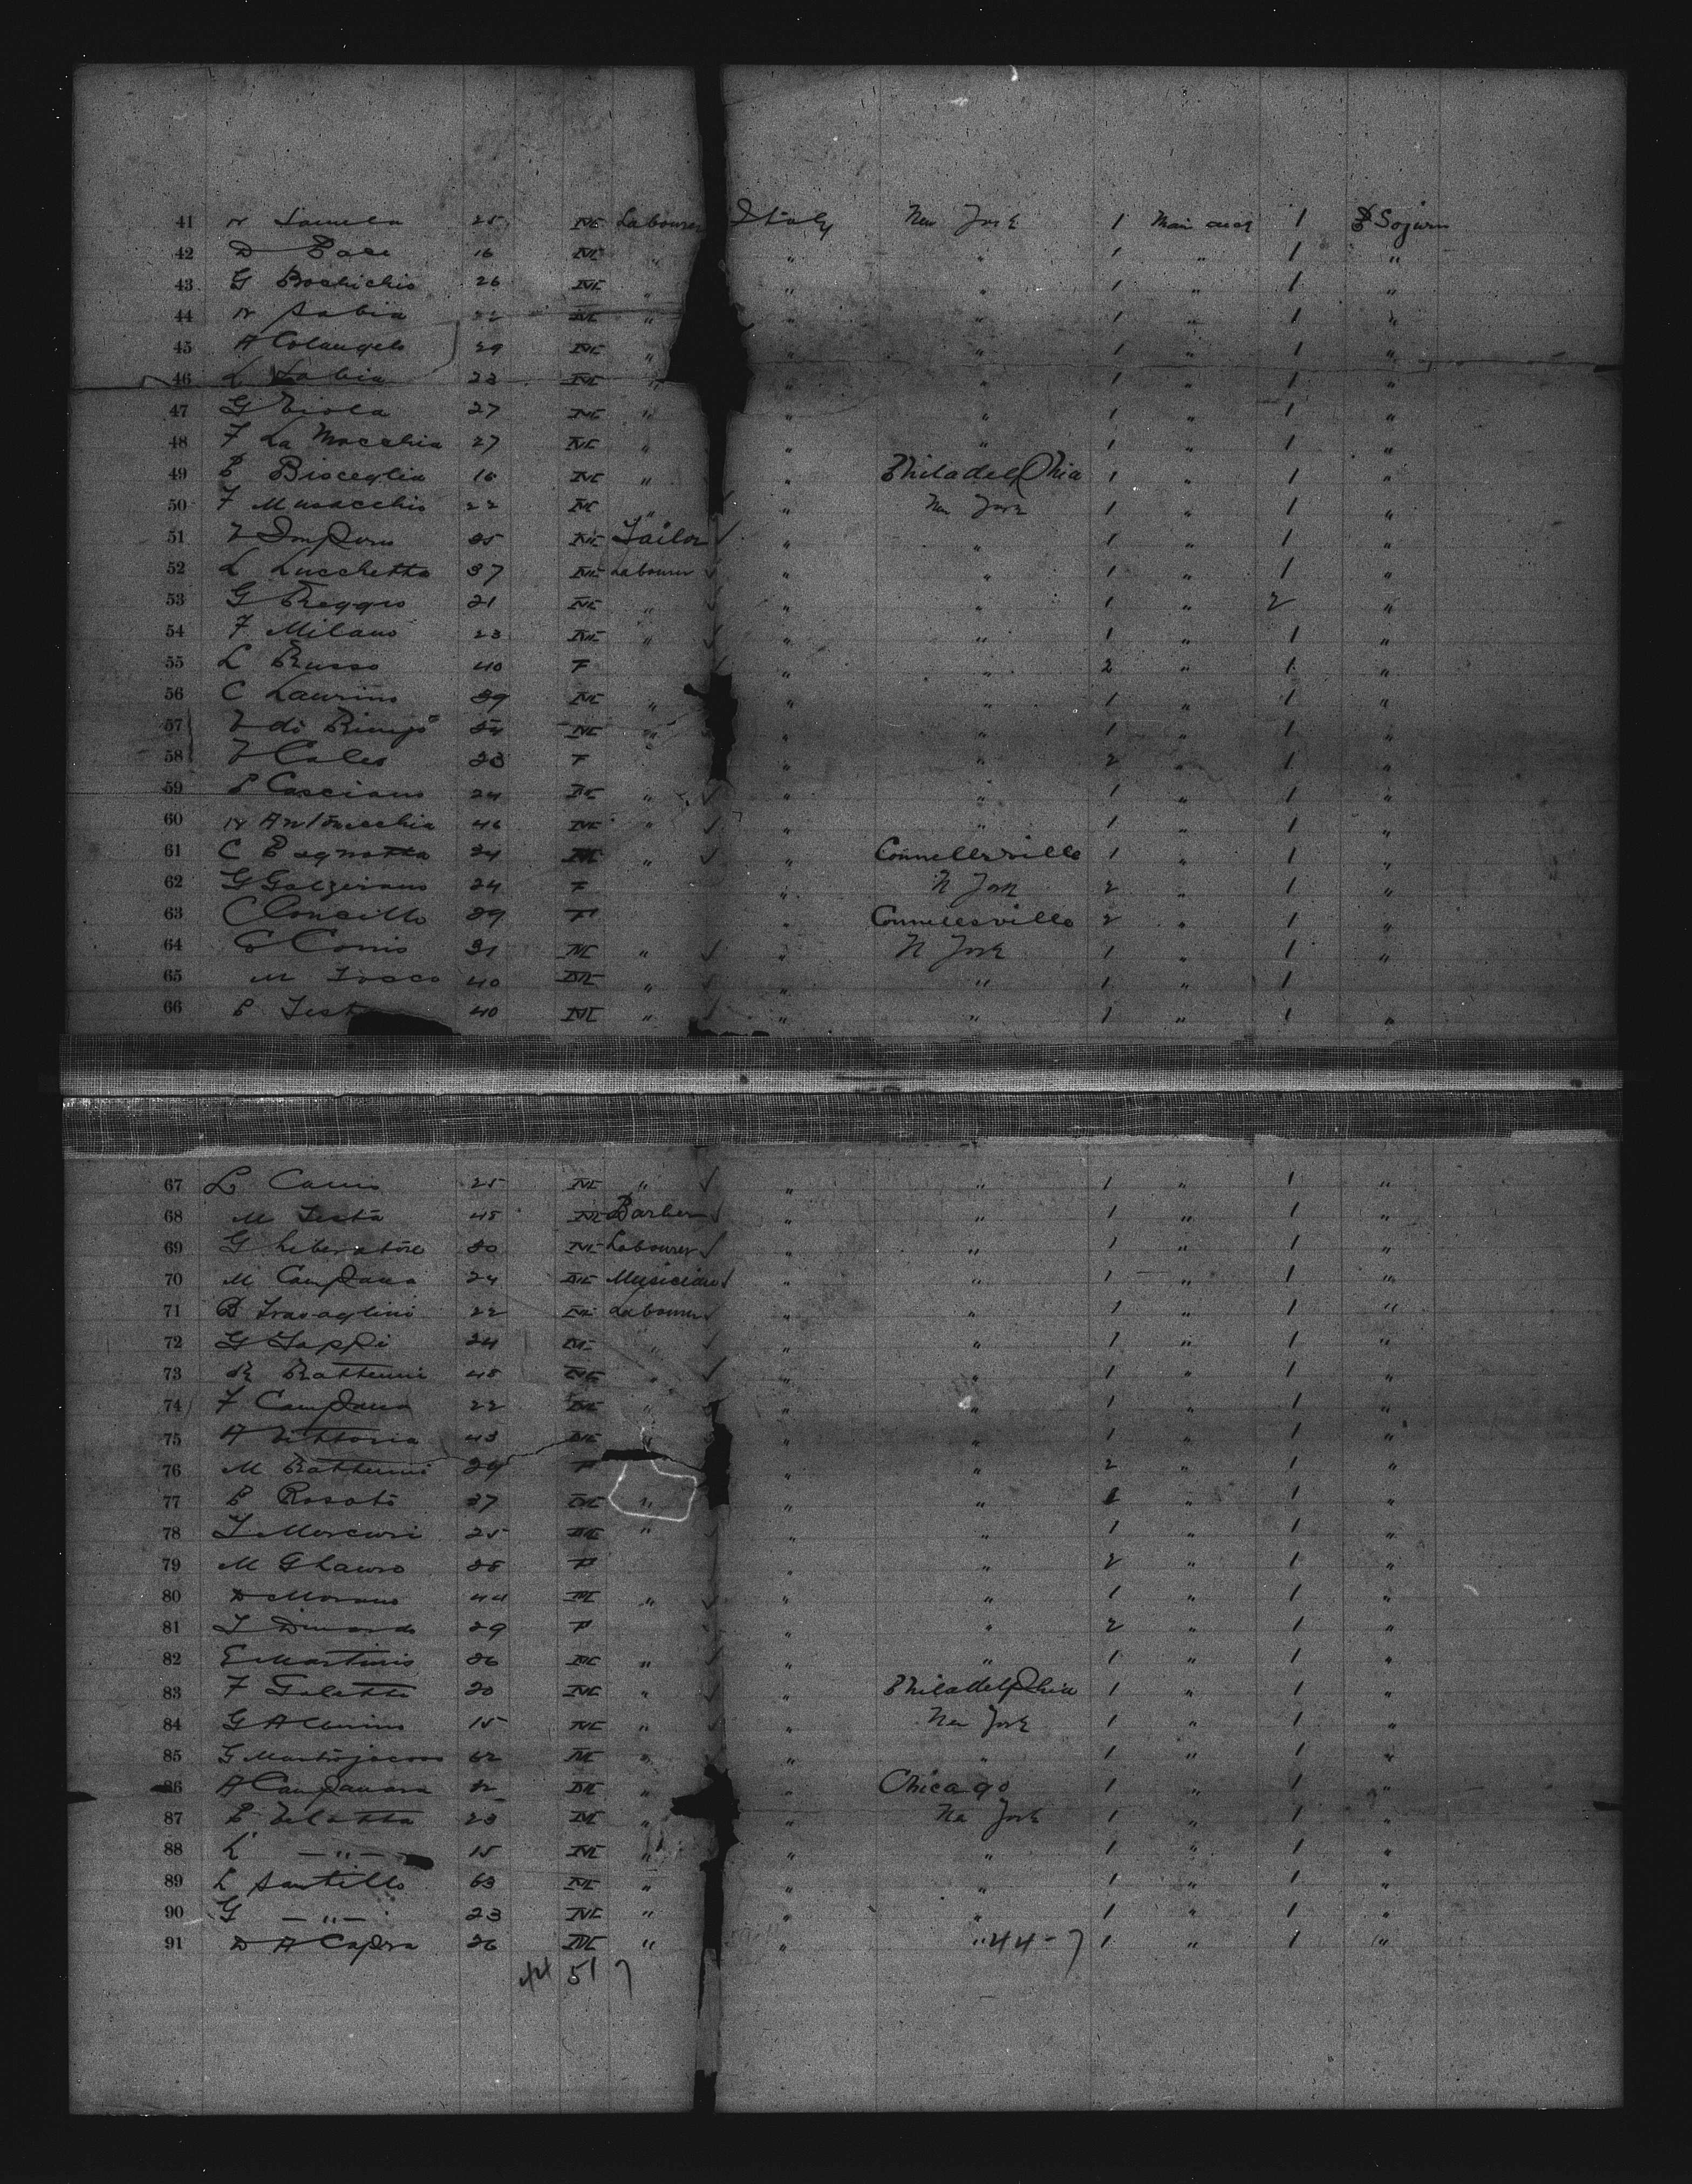 41 N 25 M Labourer Italy New York 1 Main deck 1 P Sojurn
42 D Pace 16 M " " " 1 " 1 "
43 G Bochichio 26 M " " " 1 " 1 "
44 N Sabia 22 M " " " 1 " 1 "
45 A Colangelo 29 M " " " 1 " 1 "
46 L Sabia 23 M " " " 1 " 1 "
47 G Viola 27 M " " " 1 " 1 "
48 F La Macchia 27 M " " " 1 " 1 "
49 P Bisceglia 16 M " " Philadelphia 1 " 1 "
50 F Musacchio 22 M " " New York 1 " 1 "
51 V 35 M Tailor " " 1 " 1 "
52 L Lucchetta 37 M Labourer " " 1 " 1 "
53 G Reggio 21 M " " " 1 " 2 "
54 F Milano 23 M " " " 1 " 1 "
55 L Russo 40 F " " 2 " 1 "
56 C Laurino 39 M " " " 1 " 1 "
57 V di 54 M " " " 1 " 1 "
58 V Caleo 23 F " " 2 " 1 "
59 P Casciano 24 M " " " 1 " 1 "
60 N Antonecchia 46 M " " " 1 " 1 "
61 C Pagnotta 24 M " " Connellsville 1 " 1 "
62 G Galzerano 24 F " N York 2 " 1 "
63 C Concillo 39 F " Connellsville 2 " 1 "
64 31 M " " N York 1 " 1 "
65 M Tosco 40 M " " " 1 " 1
66 P Test 40 M " " " 1 " 1 "
67 25 M " " " 1 " 1 "
68 M Testa 48 M Barber " " 1 " 1 "
69 G Liberatore 30 M Labourer " " 1 " 1 "
70 M Campana 24 M Musician " " 1 " 1 "
71 B Travaglini 22 M Labourer " " 1 " 1 "
72 G Tappi 24 M " " " 1 " 1 "
73 R Rattenni 48 M " " " 1 " 1 "
74 F Campana 22 M " " " 1 " 1 "
75 A Vittoria 43 M " " " 1 " 1 "
76 M Rattenni 24 F " " 2 " 1 "
77 P Rosato 37 M " " " " 1 "
78 T Mercuri 25 M " " " 1 " 1 "
79 M 38 F " " 2 " 1 "
80 D Morano 44 M " " " 1 " 1 "
81 T 29 F " " 2 " 1 "
82 E Martinis 36 M " " " 1 " 1 "
83 F Galatta 20 M " " Philadelphia 1 " 1 "
84 G 15 M " " New York 1 " 1 "
85 G Mastrojacovo 62 M " " " 1 " 1 "
86 A Campanara M " " Chicago 1 " 1 "
87 P Velatta 23 M " " Ne York 1 " 1 "
88 L " 15 M " " " 1 " 1 "
89 L Santillo 63 M " " " 1 " 1 "
90 G " 23 M " " " 1 " 1 "
91 D A Capra 26 M " " " 44-7 1 " 1 "
44 51 7